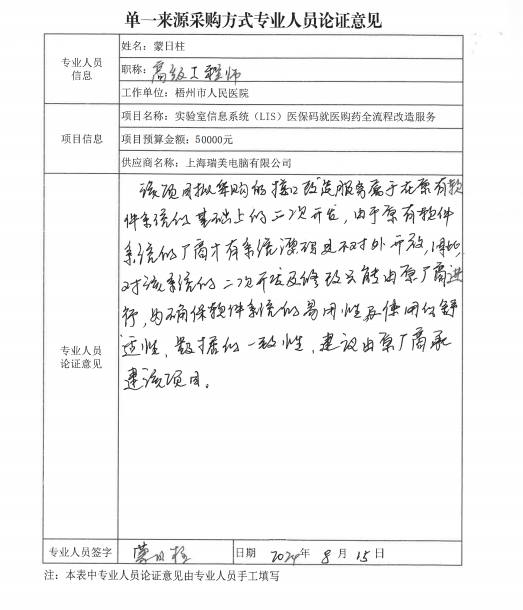 单一来源采购方式专业人员论证意见
专业人员信息
姓名：蒙日柱
职称：高级工程师
工作单位：梧州市人民医院
项目信息
项目名称：实验室信息系统（LIS）医保码就医购药全流程改造服务
项目预算金额：50000元
供应商名称：上海瑞美电脑有限公司
专业人员论证意见
该项目拟采购的接口改造服务属于在原有软
件系统的基础上的二次开发，由于原有软件
系统的厂商才有系统源码且不对外开放，因此，
对该系统的二次开发及修改只能由原厂商进
行，为确保软件系统的易用性及使用的舒
适性，数据的一致性，建议由原厂商承
建该项目。
专业人员签字 蒙日柱 日期 2024年 8 月 15日
注：本表中专业人员论证意见由专业人员手工填写